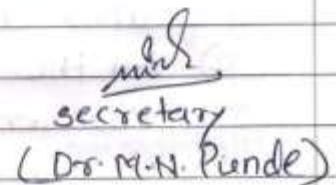 secretary
(Dr. M.N. Punde)